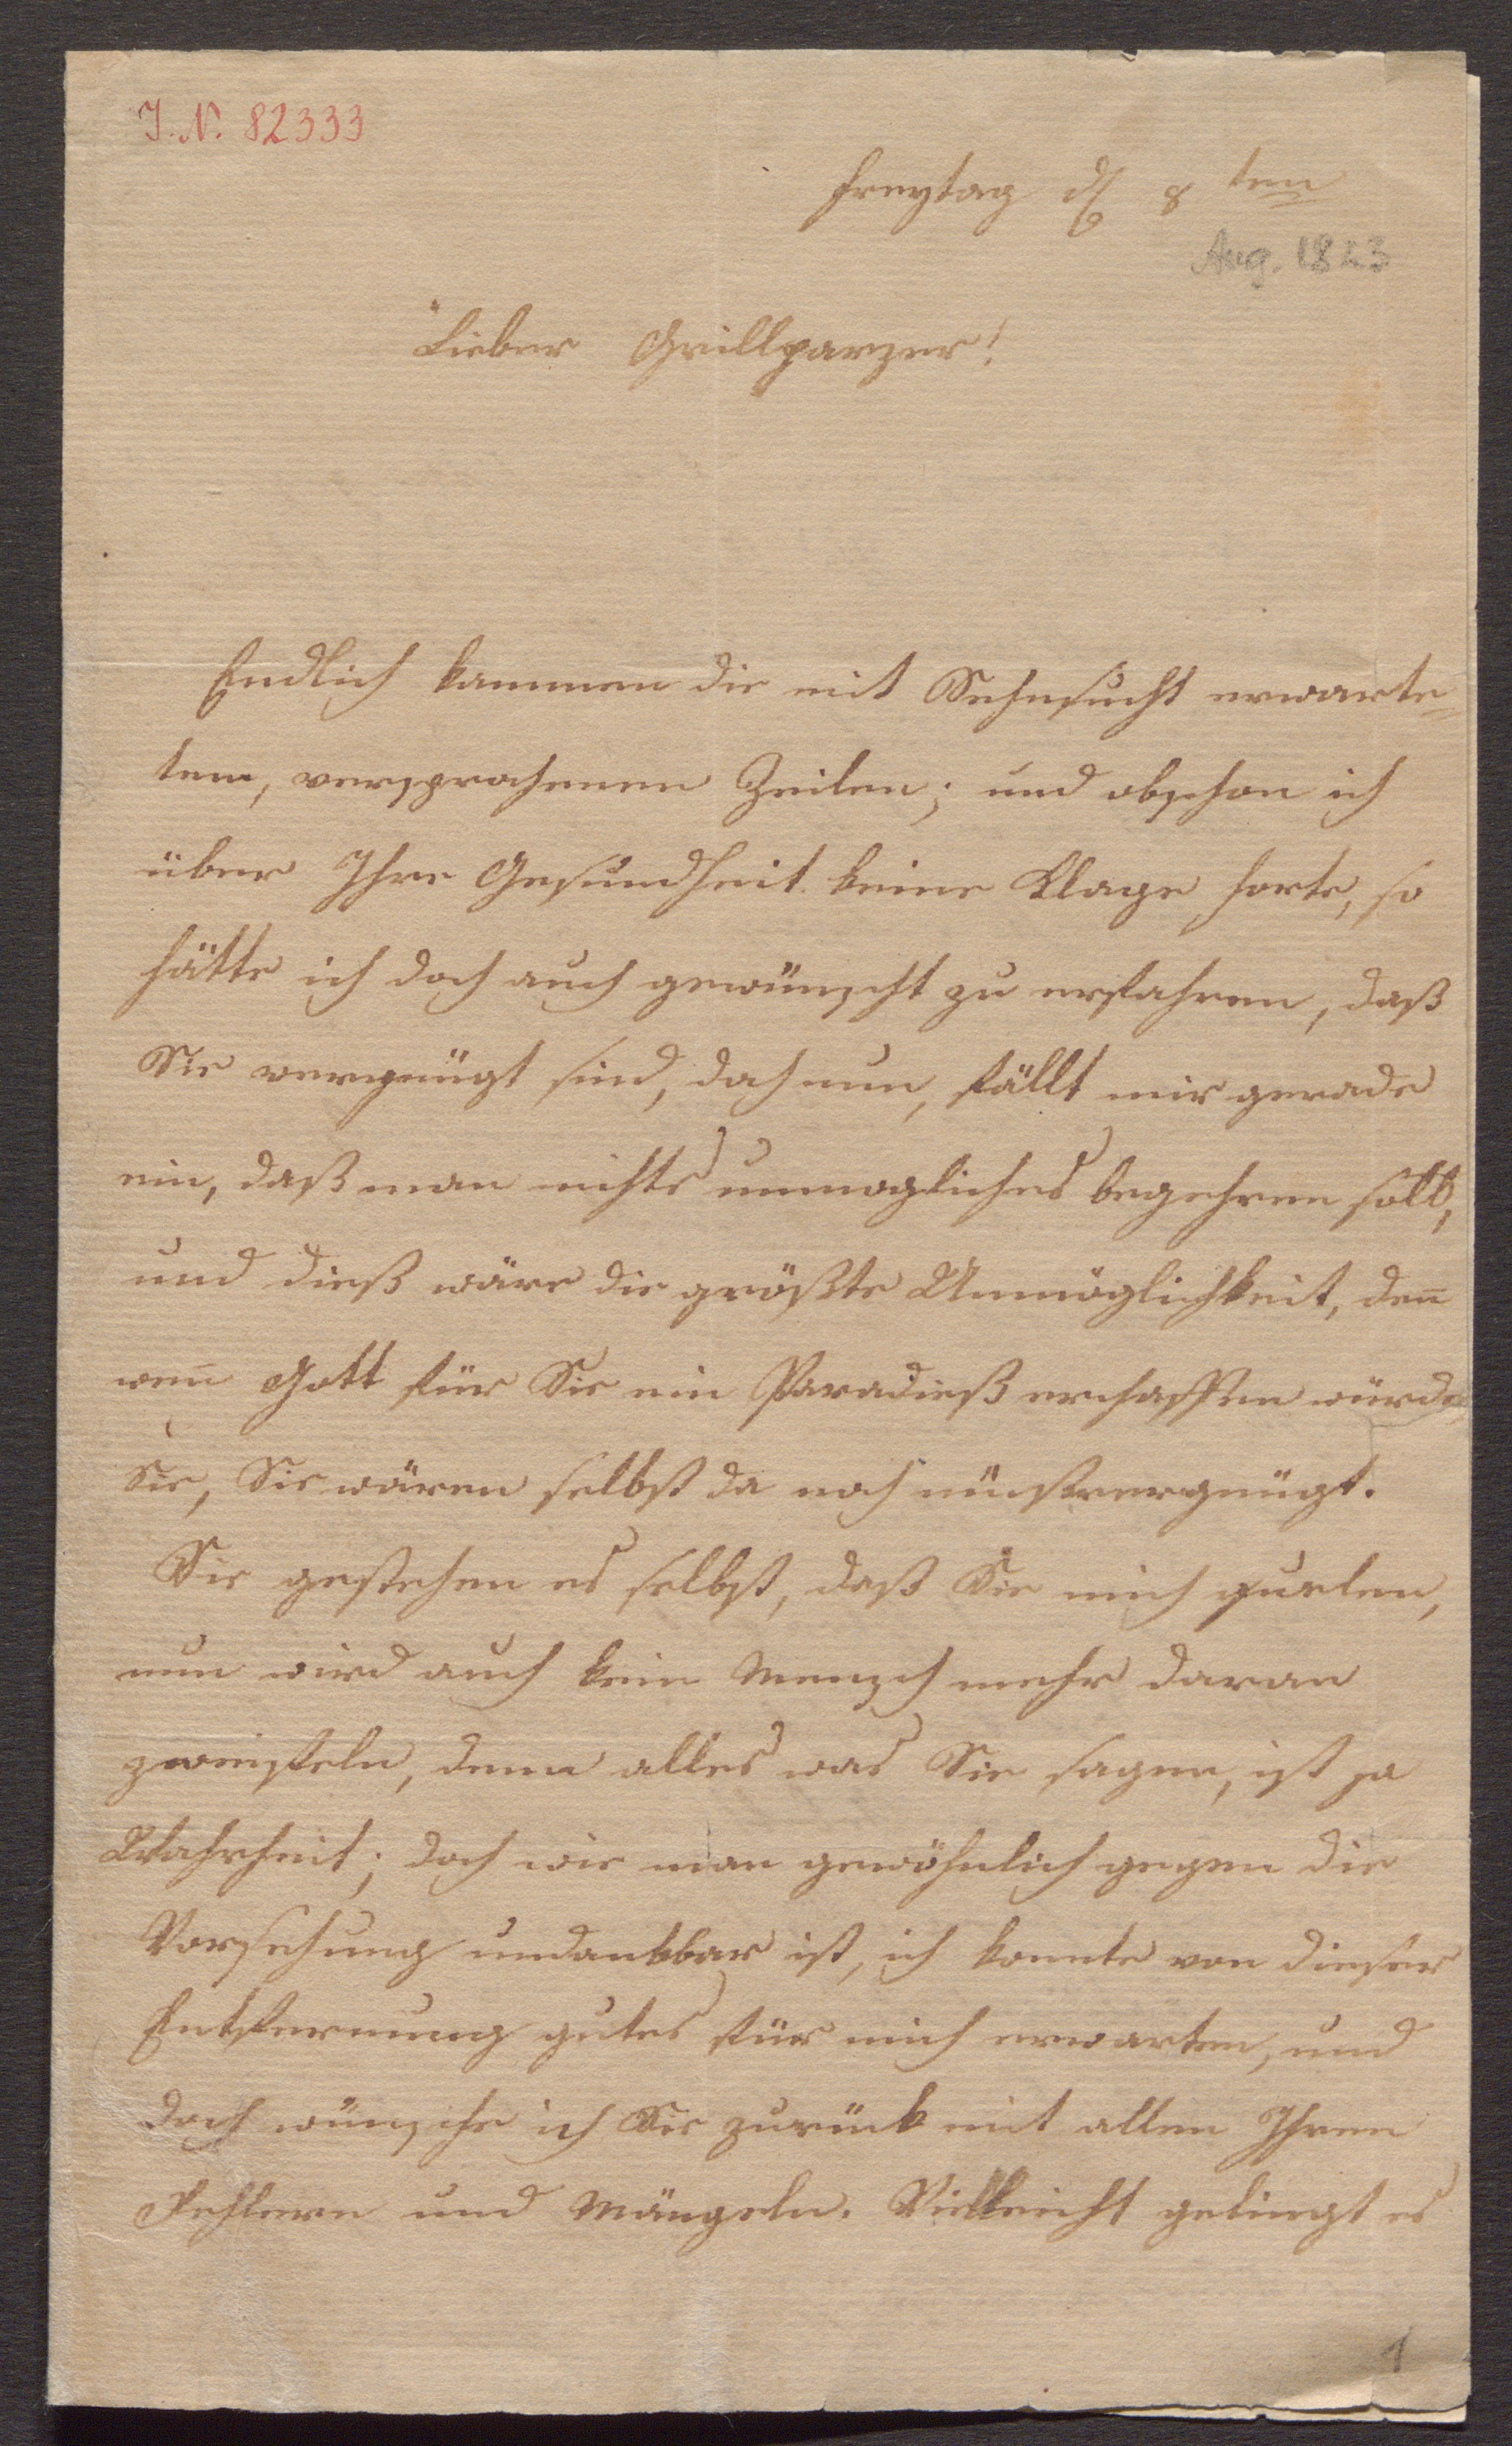 I. N. 82333
Freytag d 8 ten
Aug. 1823
Lieber Grillparzer!
Endlich kammen die mit Sehnsucht erwarte=
ten, versprochenen Zeilen; und obschon ich
über Ihre Gesundheit keine Klage horte, so
hätte ich doch auch gewünscht zu erfahren, daß
Sie vergnügt sind, doch nun, fällt mir gerade
ein, daß man nichts unmogliches begehren soll,
und dieß wäre die größte Unmöglichkeit, den̄
wen̄ Gott für Sie ein Paradieß erschaffen würde
Sie, Sie wären selbst da noch mißvergnügt.
Sie gestehen es selbst, daß Sie mich quelen,
nun wird auch kein Mensch mehr daran
zweifeln, denn alles was Sie sagen, ist ja
Wahrheit; doch wie man gewöhnlich gegen die
Vorsehung undankbar ist, ich konnte von dieser
Entfernung gutes für mich erwarten, und
doch wünsche ich Sie zurück mit allen Ihren
Fehlern und Mängeln. Vielleicht gelingt es
1